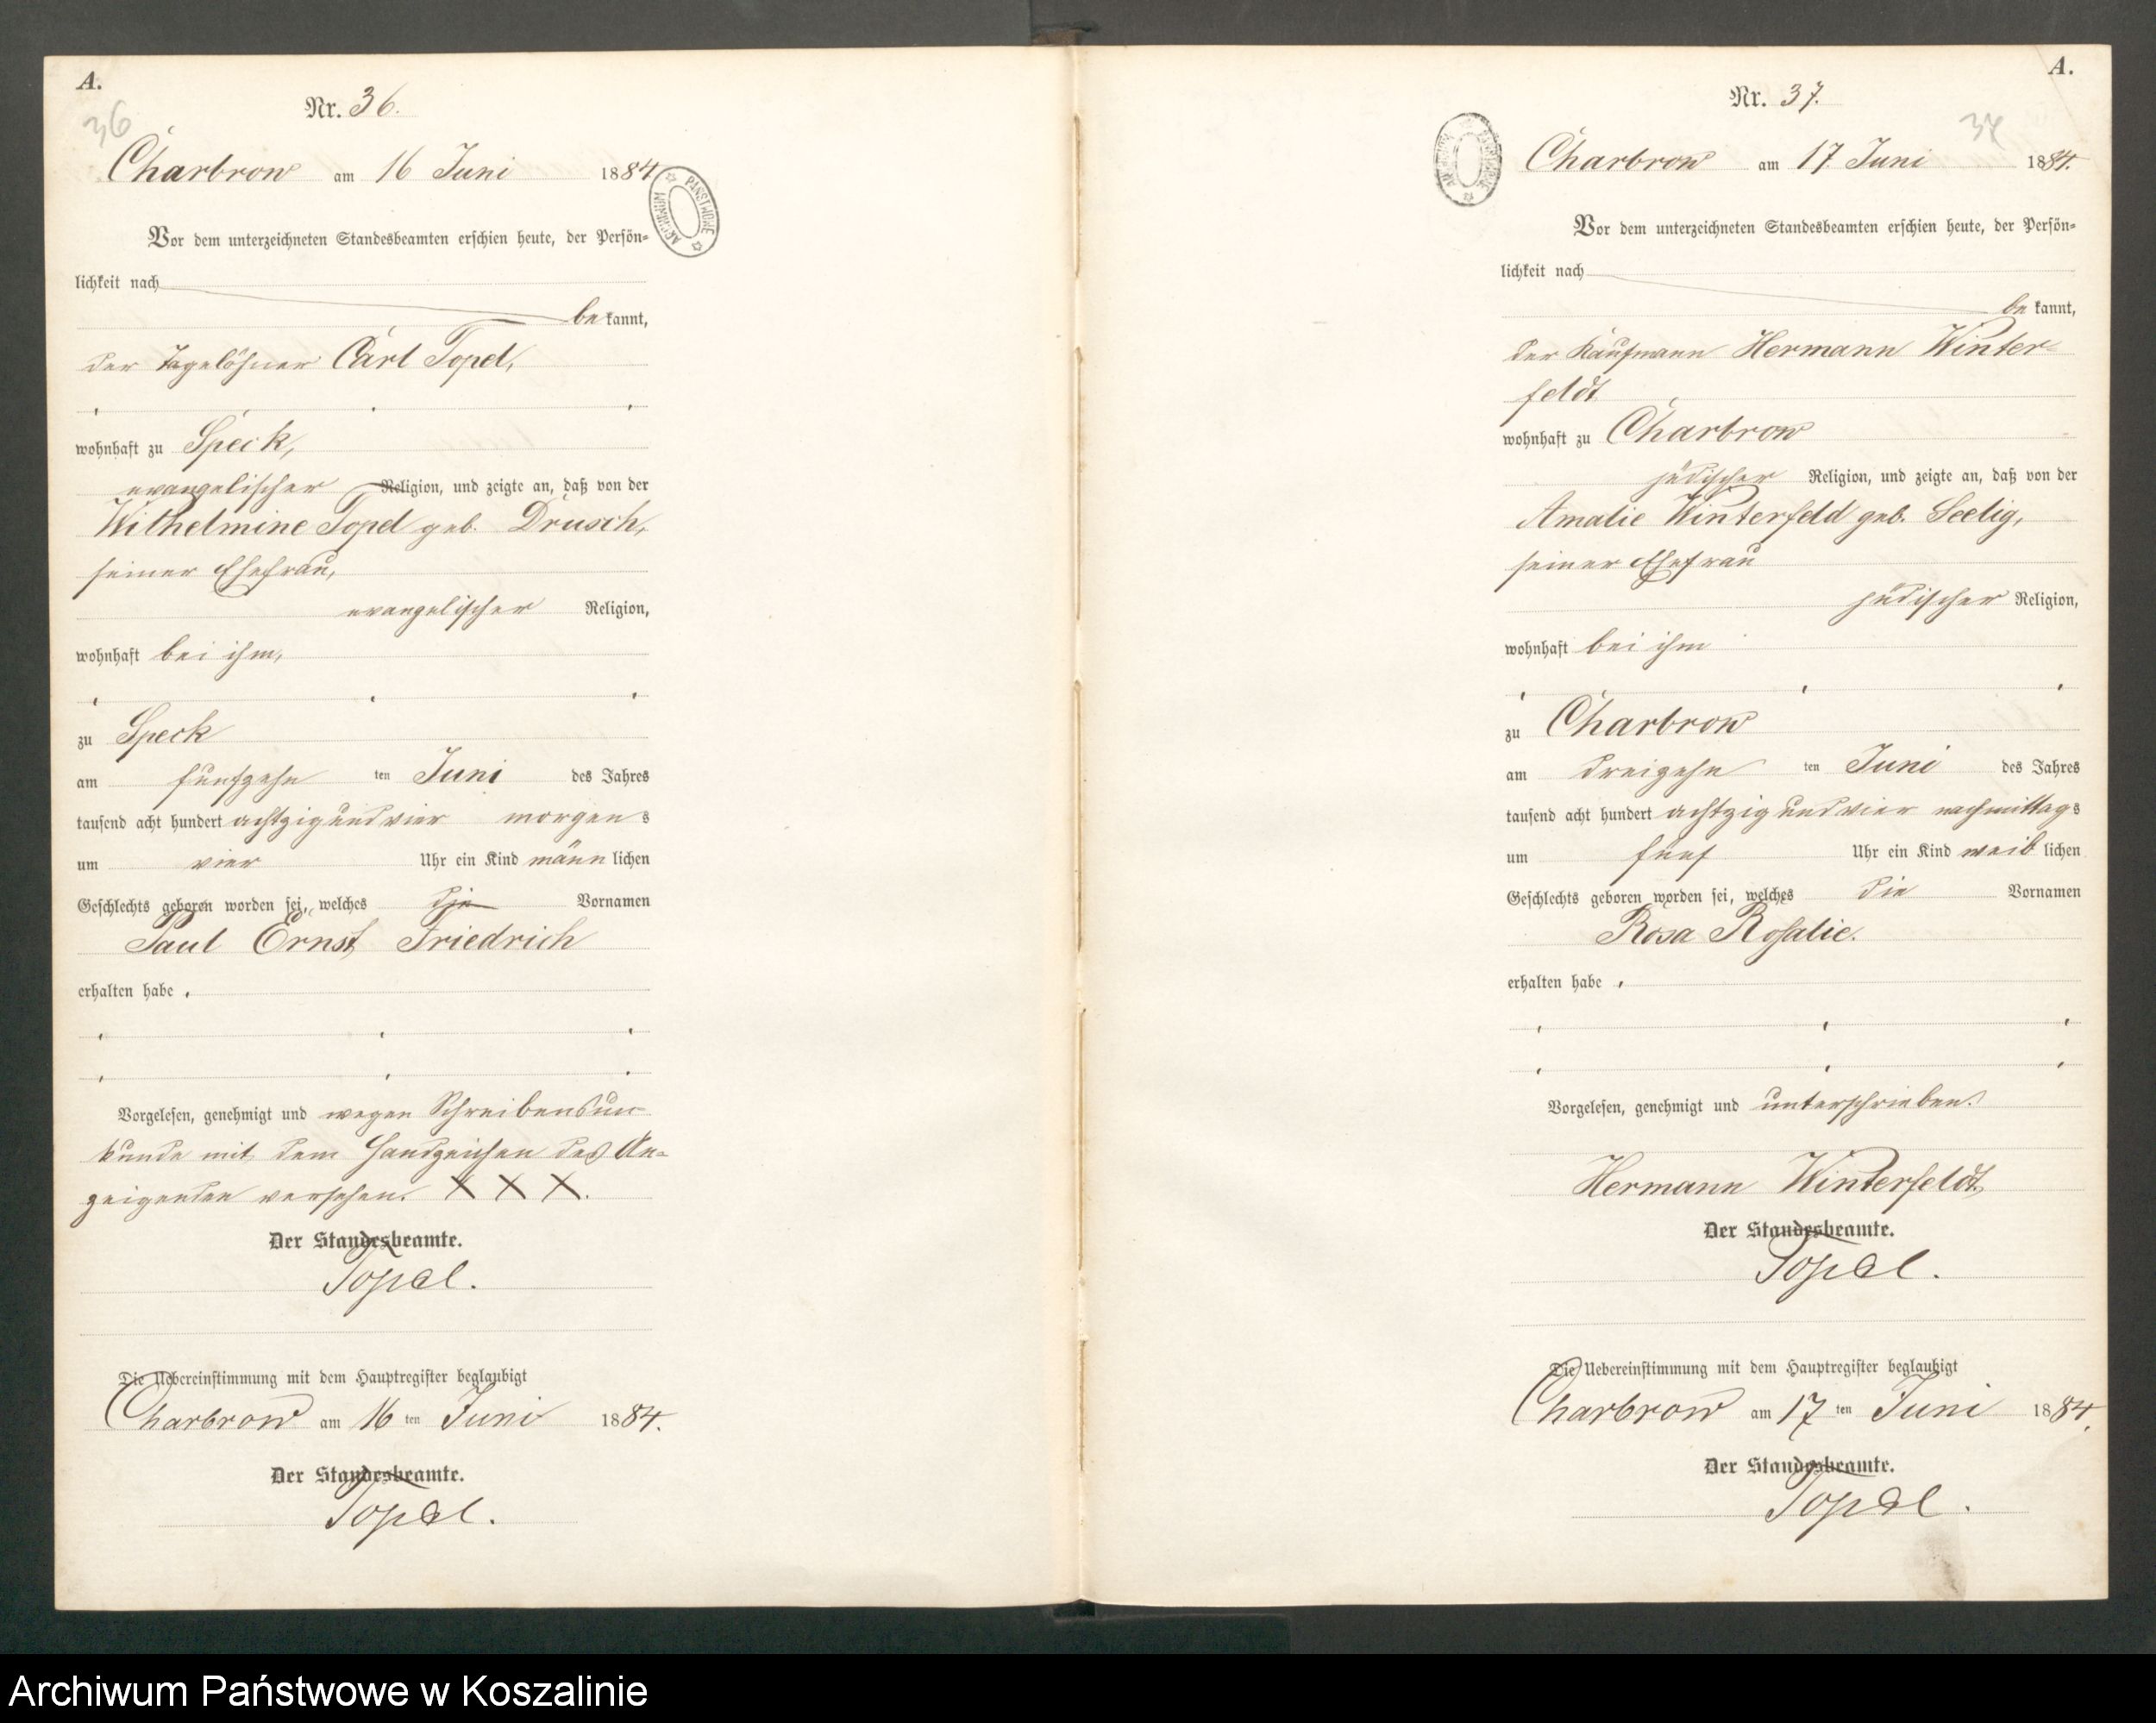 A.
36
Nr. 36.
Charbrow am 16 Juni 1884
ARCHIWUM PAŃSTWOWE
Vor dem unterzeichneten Standesbeamten erschien heute, der Persön-
lichkeit nach
bekannt,
der Tagelöhner Carl Topel,
wohnhaft zu Speck,
evangelischer Religion, und zeigte an, daß von der
Wilhelmine Topel geb. Drusch,
seiner Ehefrau,
evangelischer Religion,
wohnhaft bei ihm,
zu Speck
am fünfzehn ten Juni des Jahres
tausend acht hundert achtzig und vier morgens
um vier Uhr ein Kind männlichen
Geschlechts geboren worden sei, welches die Vornamen
Paul Ernst Friedrich
erhalten habe.
Vorgelesen, genehmigt und wegen Schreibensun-
kunde mit dem Handzeichen des An-
zeigenden versehen. X X X.
Der Standesbeamte.
Topel.
Die Uebereinstimmung mit dem Hauptregister beglaubigt
Charbrow am 16 ten Juni 1884.
Der Standesbeamte.
Topel.
A.
37
Nr. 37.
Charbrow am 17 Juni 1884.
ARCHIWUM PAŃSTWOWE
Vor dem unterzeichneten Standesbeamten erschien heute, der Persön-
lichkeit nach
bekannt,
der Kaufmann Hermann Winter-
feldt
wohnhaft zu Charbrow
jüdischer Religion, und zeigte an, daß von der
Amalie Winterfeld geb. Seelig,
seiner Ehefrau
jüdischer Religion,
wohnhaft bei ihm
zu Charbrow
am dreizehn ten Juni des Jahres
tausend acht hundert achtzig und vier nachmittags
um fünf Uhr ein Kind weiblichen
Geschlechts geboren worden sei, welches die Vornamen
Rosa Rosalie.
erhalten habe.
Vorgelesen, genehmigt und unterschrieben.
Hermann Winterfeldt
Der Standesbeamte.
Topel.
Die Uebereinstimmung mit dem Hauptregister beglaubigt
Charbrow am 17 ten Juni 1884.
Der Standesbeamte.
Topel.
Archiwum Państwowe w Koszalinie